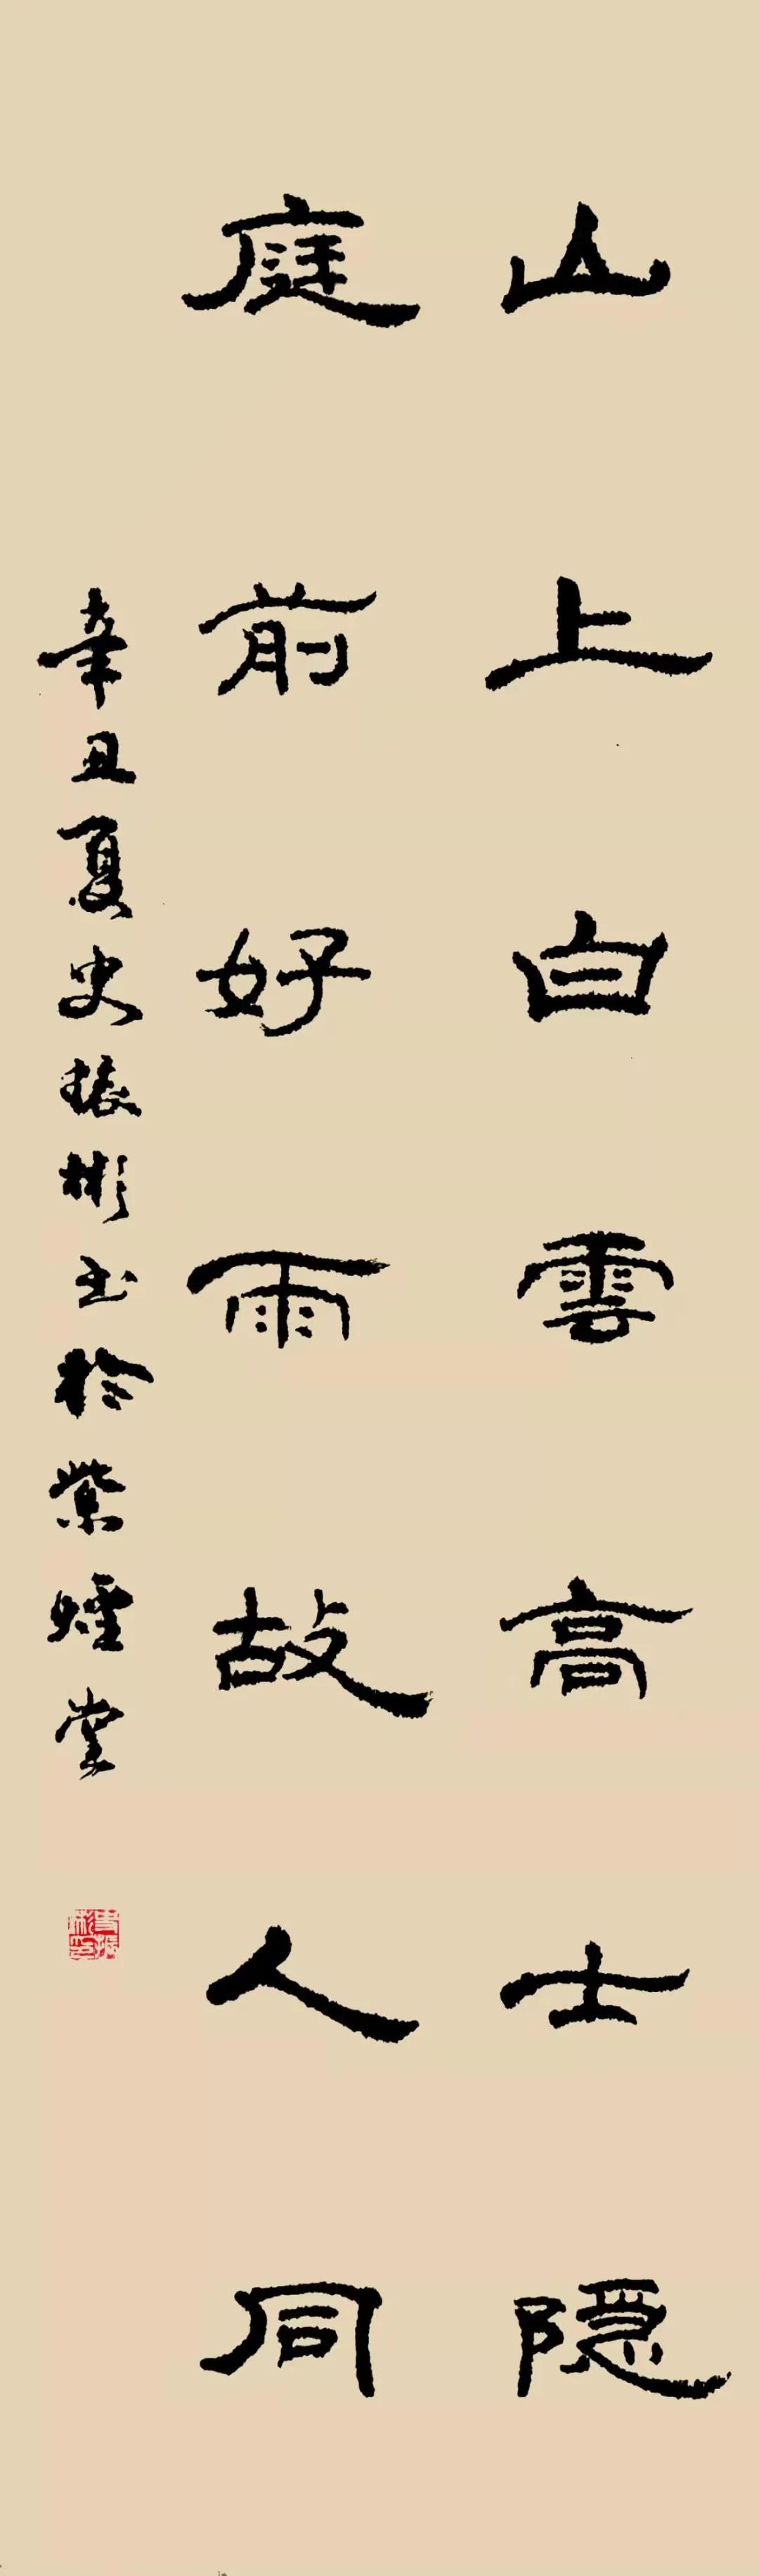 山上白雲高士隱
庭前好雨故人同
辛丑夏史振彬书於紫煙堂